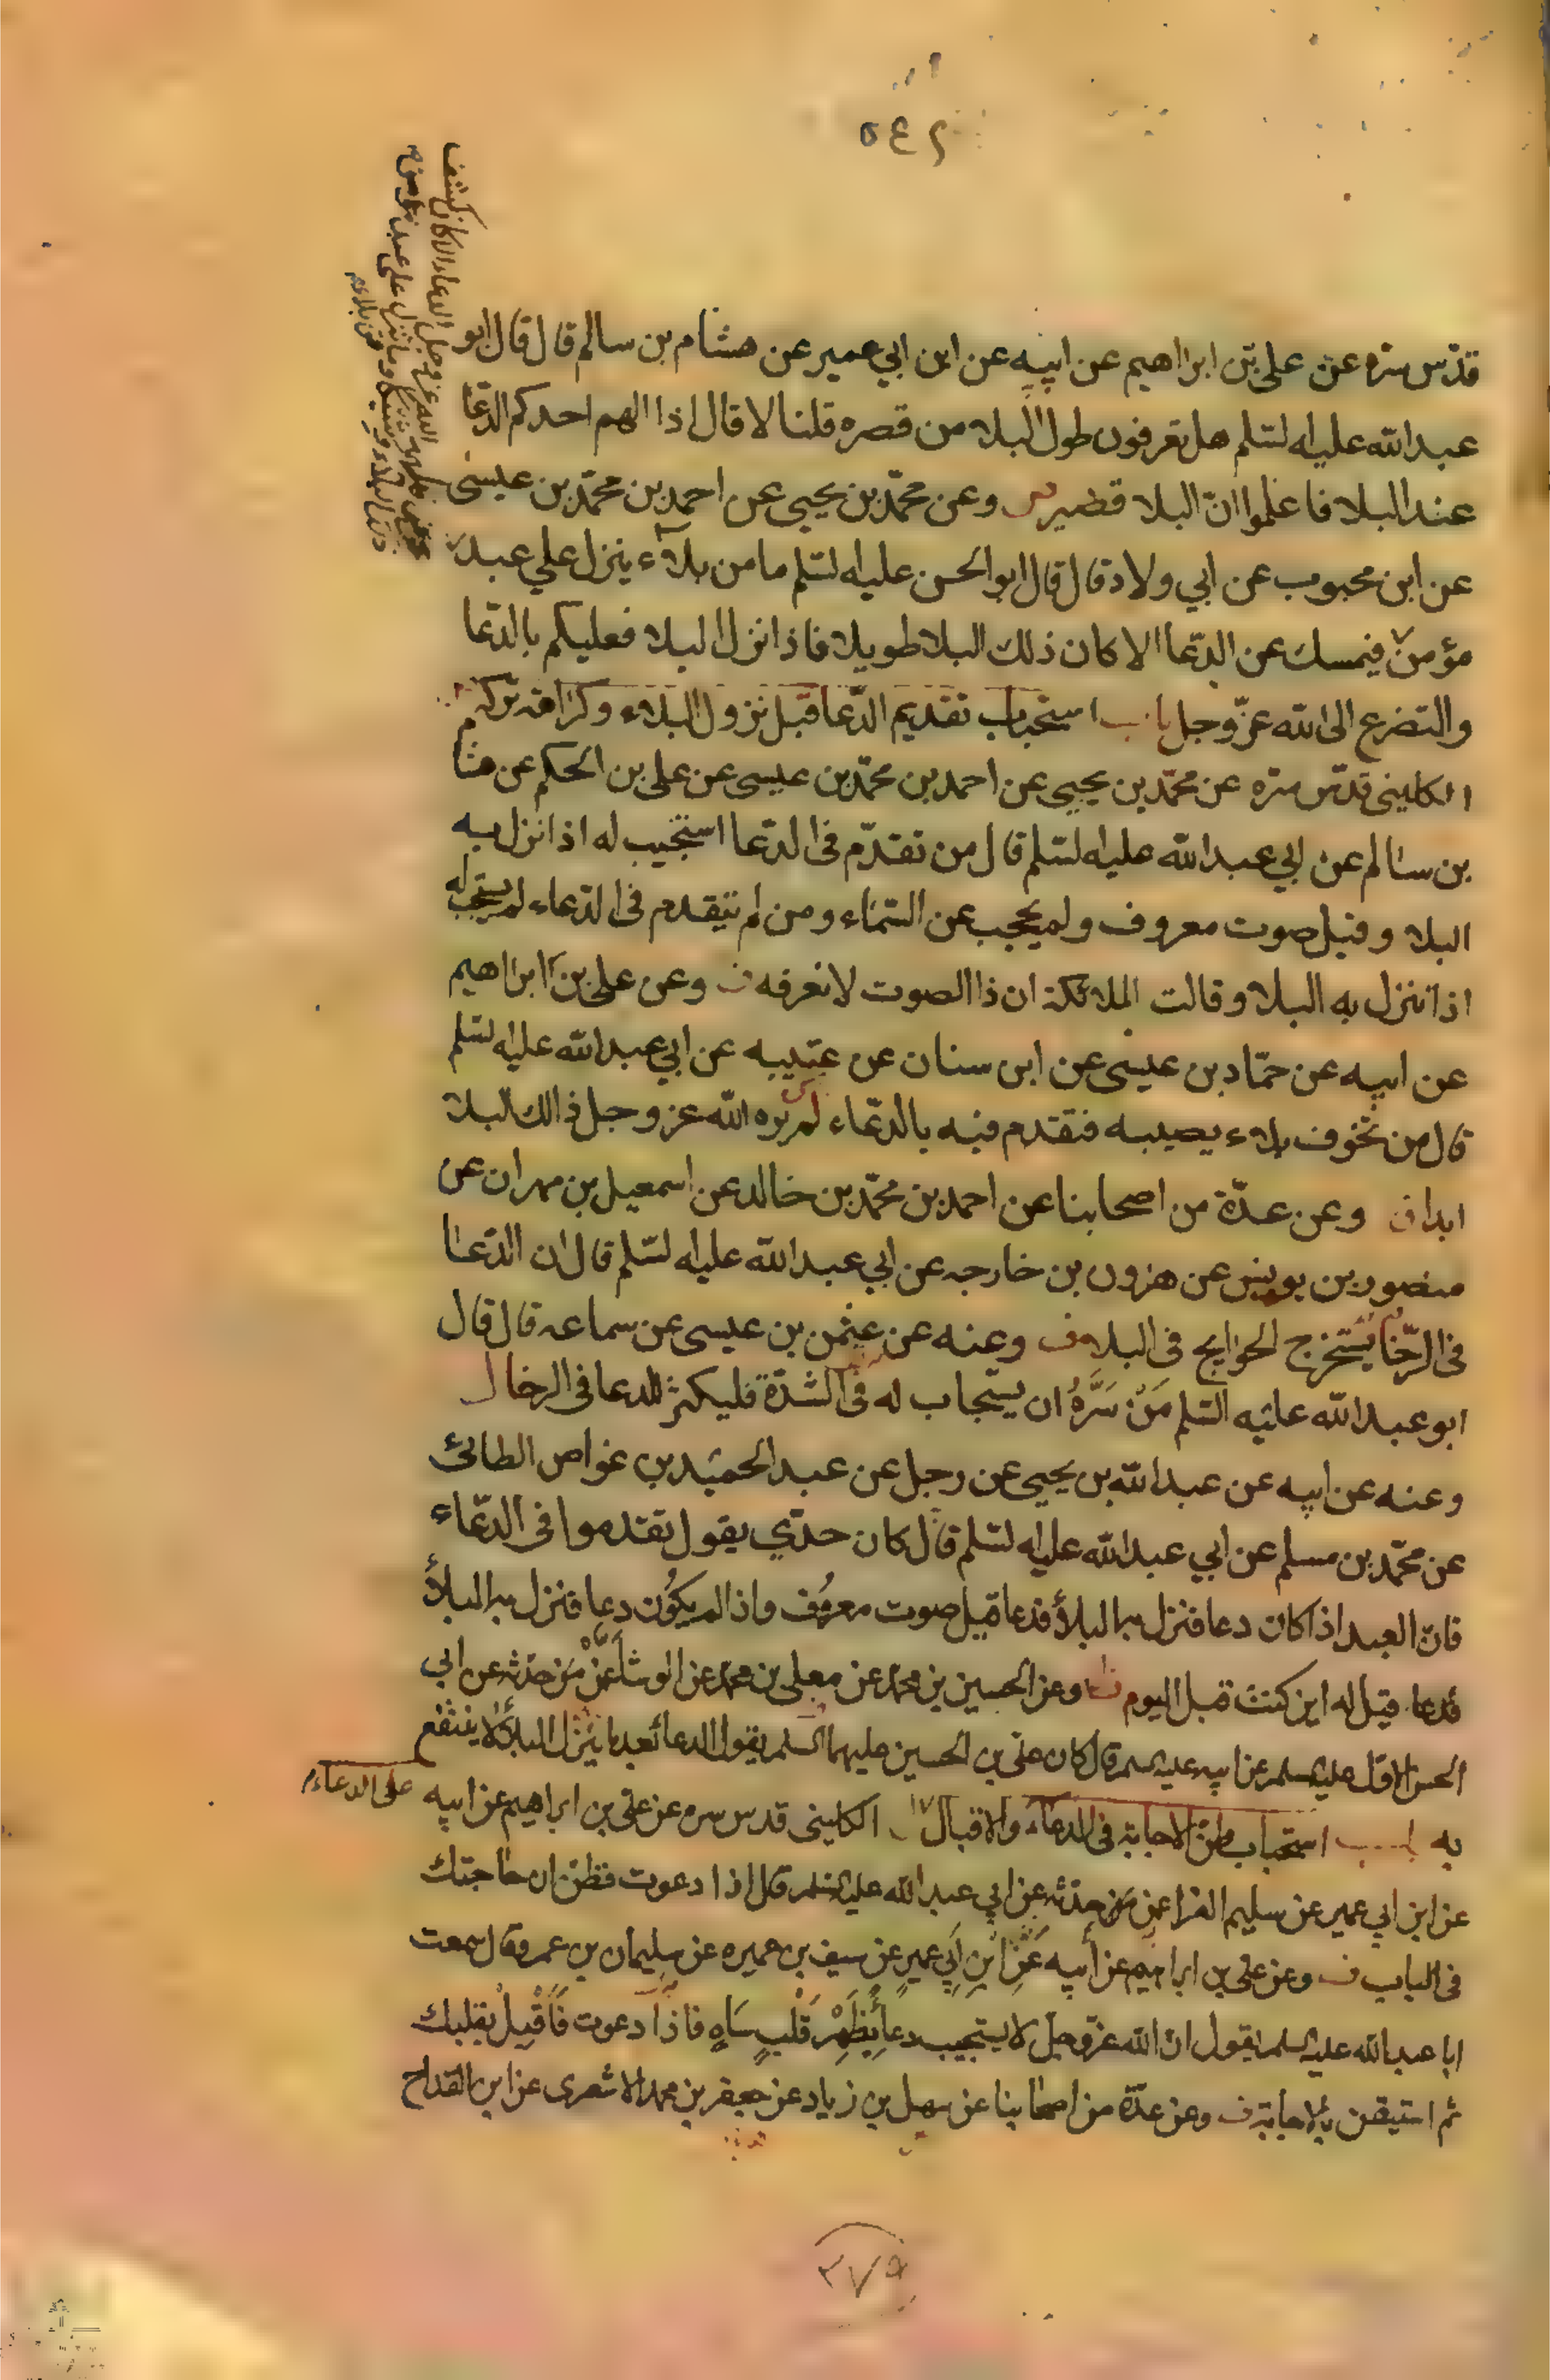 ٥٤٢
قدّس سرّه عن علي بن ابراهيم عن ابيه عن ابن ابي عمير عن هشام بن سالم قال قال ابو
عبد الله عليه السلم هل تعرفون طول البلاء من قصره قلنا لا قال اذا الهم احدكم الدعا
عند البلاء فاعلموا ان البلاء قصير وعن محمّد بن يحيى عن احمد بن محمّد بن عيسى
عن ابن محبوب عن ابي ولاد قال قال ابو الحسن عليه السلم ما من بلاء ينزل علي عبد
مؤمن فيمسك عن الدّعا الا كان ذلك البلا طويلا فاذا نزل البلا فعليكم بالدّعا
والتضرع الى الله عزّ وجل باب استحباب تقديم الدّعا قبل نزول البلاء وكراهة تركه
الكليني قدّس سرّه عن محمّد بن يحيى عن احمد بن محمّد بن عيسى عن علي بن الحكم عن هشا
بن سالم عن ابي عبد الله عليه السلم قال من تقدّم في الدّعا استجيب له اذا نزل به
البلا وقيل صوت معروف ولم يحجب عن السّماء ومن لم يتقدم في الدّعاء لم يستجب له
اذا نزل به البلا وقالت الملائكة ان ذا الصوت لا نعرفه ف وعن علي بن ابراهيم
عن ابيه عن حمّاد بن عيسى عن ابن سنان عن عتيبه عن ابي عبد الله عليه السلم
قال من تخوف بلاء يصيبه فتقدم فيه بالدّعاء لم يره الله عز وجل ذالك البلا
ابدا ف وعن عدّة من اصحابنا عن احمد بن محمّد بن خالد عن اسمعيل بن مهران عن
منصور بن يونس عن هرون بن خارجه عن ابي عبد الله عليه السلم قال ان الدّعا
في الرّخا يستخرج الحوايج في البلا ف وعنه عن عثمن بن عيسى عن سماعه قال قال
ابو عبد الله عليه السّلم مَنْ سَرَّهُ ان يستجاب له في الشدّة فليكثر الدعا في الرخا
وعنه عن ابيه عن عبد الله بن يحيى عن رجل عن عبد الحميد بن غواص الطائي
عن محمّد بن مسلم عن ابي عبد الله عليه السلم قال كان جدّي يقول تقدموا في الدّعاء
فانّ العبد اذا كان دعا فنزل به البلأ فدعا قيل صوت معروف واذا لم يكون دعا فنزل به البلأ
فدعا قيل له اين كنت قبل اليوم ف وعن الحسين بن محمد عن معلى بن محمد عن الوشا عمّن حدّثه عن ابي
الحسن الاوّل عليه السلم عن ابيه عليه السلم قال كان علي بن الحسين عليهما السلم يقول الدعا بعد ما ينزل البلأ لا ينتفع
به باب استحباب ظن الاجابة في الدعاء والاقبال الكليني قدس سره عن علي بن ابراهيم عن ابيه
على الدعاء
عن ابن ابي عمير عن سليم الفرا عمن حدّثه عن ابي عبد الله عليه السلم قال اذا دعوت فظن ان حاجتك
في الباب ف وعن علي بن ابراهيم عن أبيه عَنِ ابْنِ اَبِي عميرٍ عن سيف بن عميره عن سليمان بن عمرو قال سمعت
ابا عبد الله عليه السلم يقول ان الله عزّ وجلّ لا يستجيب دعاً بِظَهْرِ قَلْبٍ سَاهٍ فاذا دعوت فَاَقْبِلْ بقلبك
ثم استيقن بالاجابة ف وعن عدّة من اصحابنا عن سهل بن زياد عن جعفر بن محمد الاشعرى عن ابن القداح